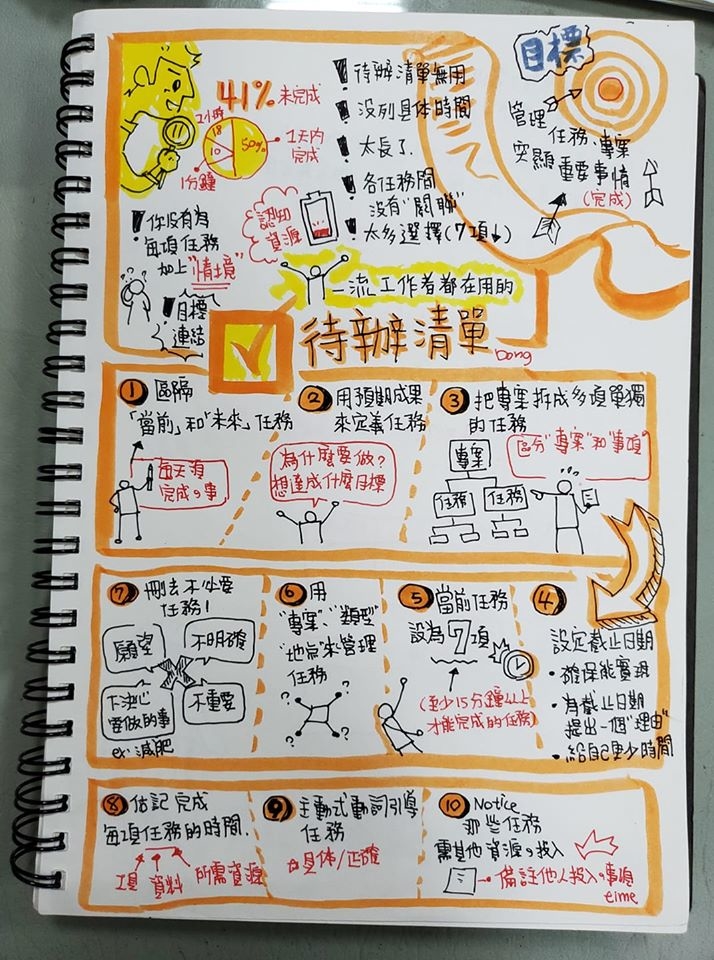 41% 未完成
2小時
18
10
50%
1分鐘
1天內
完成
! 待辦清單無用
! 沒列具体時間
! 太長了
! 各任務間
沒有"關聯"
! 太多選擇(7項↓)
目標
管理
任務、專案
突顯重要事情
(完成)
! 你沒有為
每項任務
加上"情境"
認知
資源
! 目標
連結
一流工作者都在用的
待辦清單
Dong
① 區隔
「當前」和「未來」任務
每天須
完成の事
② 用預期成果
來定義任務
為什麼要做?
想達成什麼目標
③ 把專案拆成多項單獨
的任務
區分"專案"和"事項"
專案
任務 任務
④
設定截止日期
・確保能實現
・為截止日期
提出一個"理由"
・給自己更少時間
⑤ 當前任務
設為7項
(至少15分鐘以上
才能完成的任務)
⑥ 用
"專案"、"類型"
"地点"來管理
任務
? ? ? ?
⑦ 刪去不必要
任務!
願望
不明確
下決心
要做的事
不重要
ex: 減肥
⑧ 估記完成
每項任務的時間.
工具 資料 所需資源
⑨ 主動式動詞引導
任務
具体/正確
⑩ Notice
那些任務
需其他資源の投入
備註他人投入の事項
time